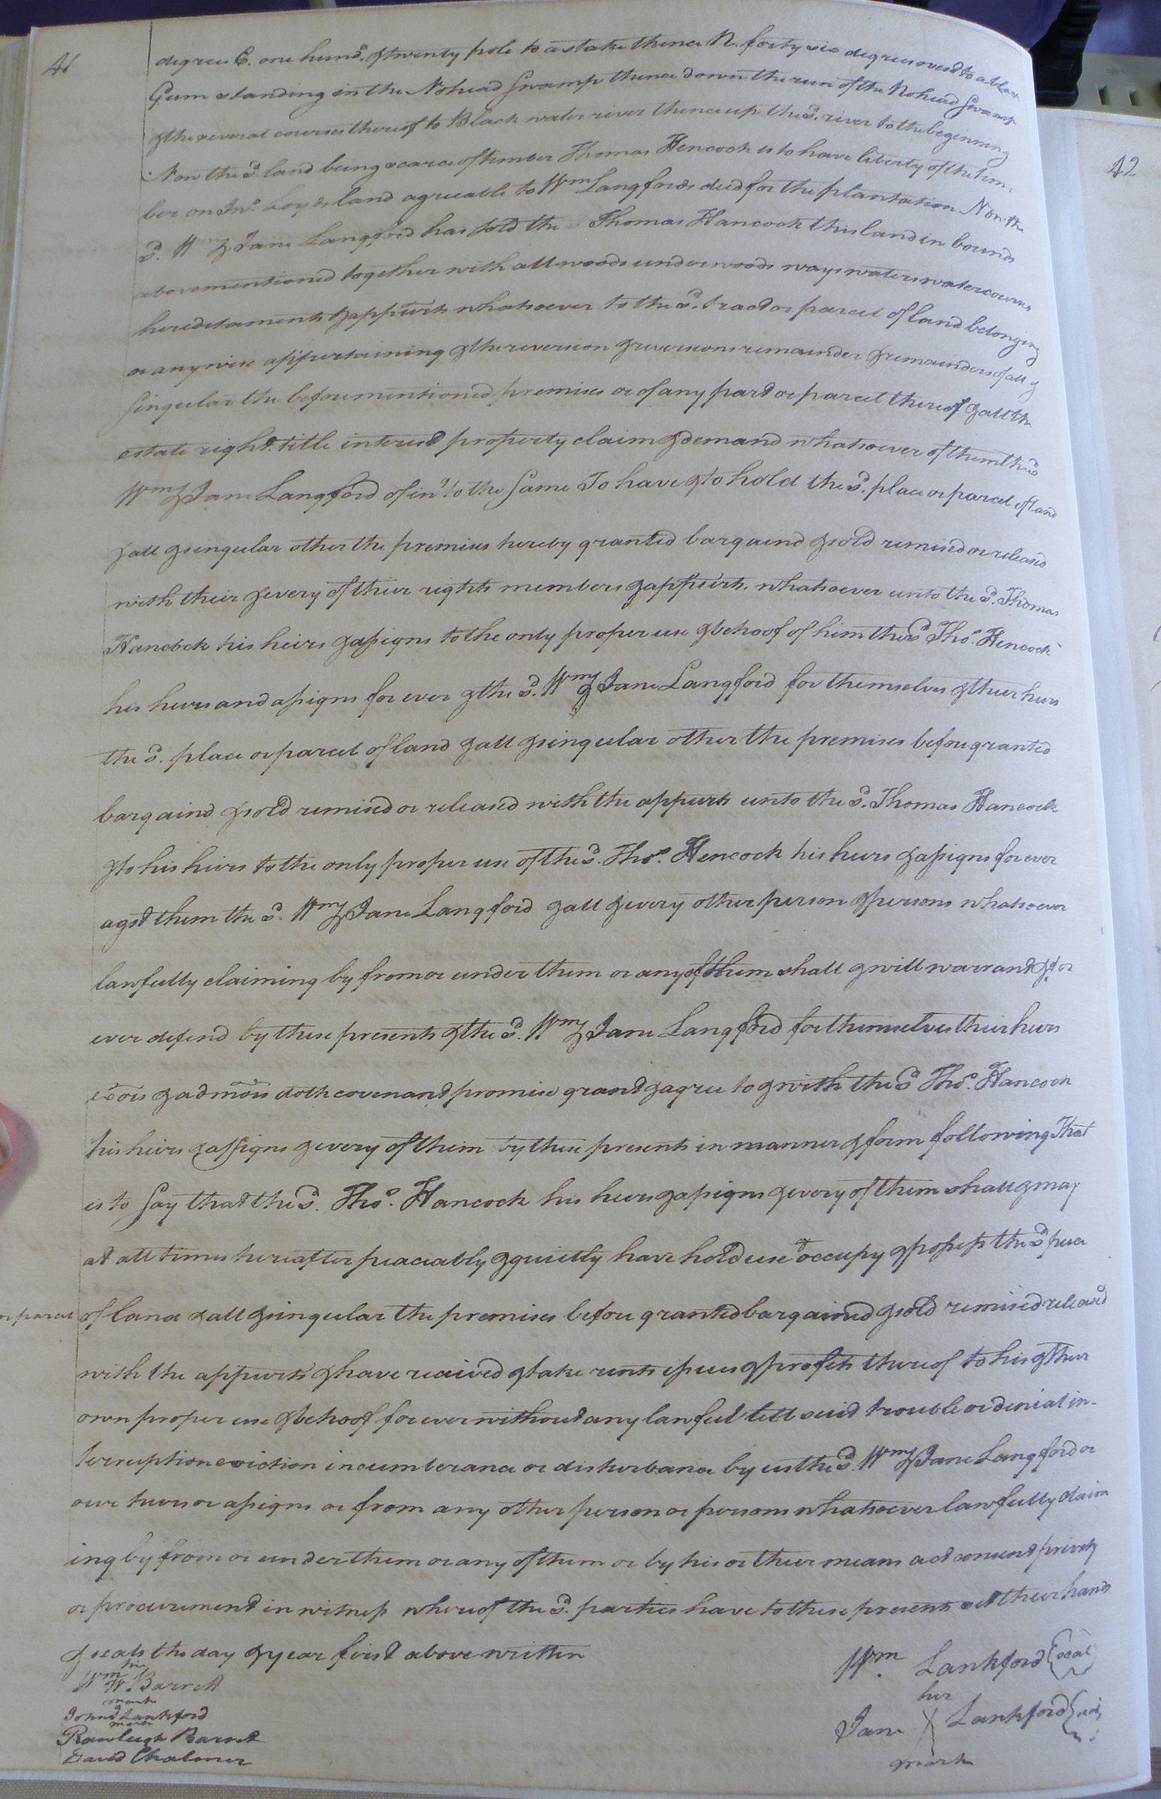 41
degrees E. one hund. & twenty pole to a stake thence N. forty six degrees west to a black
Gum standing in the Nohead Swamp thence down the run of the Nohead Swamp
& the several courses thereof to Black water river thence up the sd. river to the beginning
Now the sd land being scarce of timber Thomas Hencock is to have liberty of the tim-
ber on Jno. land agreable to Wm Langfords deed for the plantation Now the
sd. W & Jane Langford has sold the Thomas Hancock this land in bounds
abovementioned together with all woods underwoods ways waters watercourses
hereditaments & appurts whatsoever to the sd. tract or parcel of land belonging
or any wise appurtaining & the reversion & reversions remainder & remainders of all &
singular the beforementioned premises or of any part or parcel thereof & all the
estate right title interest property claim & demand whatsoever of them the sd
Wm & Jane Langford of in & to the same To have & to hold the sd. place or parcel of land
& all & singular other the premises hereby granted bargaind & sold remised or released
with their & every of their rights members & appurts. whatsoever unto the sd. Thomas
Hancock his heirs & assigns to the only proper use & behoof of him the sd Thos. Hencock
his heirs and assigns for ever & the sd. Wm & Jane Langford for themselves & their heirs
the sd. place or parcel of land & all & singular other the premises before granted
bargaind & sold remised or released with the appurts unto the sd. Thomas Hancock
& to his heirs to the only proper use of the sd. Thos. Hencock his heirs & assigns for ever
agst them the sd. Wm & Jane Langford & all & every other person & persons whatsoever
lawfully claiming by from or under them or any of them shall & will warrant & for
ever defend by these presents & the sd. Wm & Jane Langford for themselves their heirs
exors & admors doth covenant promise grant & agree to & with the sd Thos. Hancock
his heirs & assigns & every of them by these presents in manner & form following That
is to say that the sd. Thos. Hancock his heirs & assigns & every of them shall & may
at all times hereafter peaceably & quietly have hold use occupy & possess the sd piece
or parcel of land & all & singular the premises before granted bargained & sold remised released
with the appurts & have received & take rents issues & profits thereof to his & their
own proper use & behoof for ever without any lawful lett suid trouble or denial in-
terruption eviction incumberance or disturbance by us the sd. Wm & Jane Langford or
our heirs or assigns or from any other person or persons whatsoever lawfully claim
ing by from or under them or any of them or by his or their means act consent privity
or procurement in witness whereof the sd. parties have to these presents set their hands
& seals the day & year first above written
Wm. Lankford seal
his
Wm W. Barrett
mark
her
Jane X Lankford seal
mark
John Lankford
mark
Rawleigh Barret
David Chalmer
42